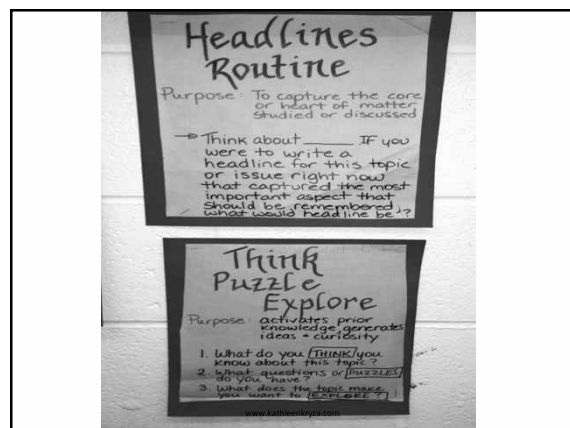 Headlines
Routine
Purpose: To capture the core
or heart of matter
studied or discussed
→ Think about _____ If you
were to write a
headline for this topic
or issue right now
that captured the most
important aspect that
should be remembered,
what would headline be?
Think
Puzzle
Explore
Purpose: activates prior
knowledge, generates
ideas + curiosity
1. What do you THINK you
know about this topic?
2. What questions or PUZZLES
do you have?
3. What does the topic make
you want to EXPLORE?
www.kathleenkryza.com